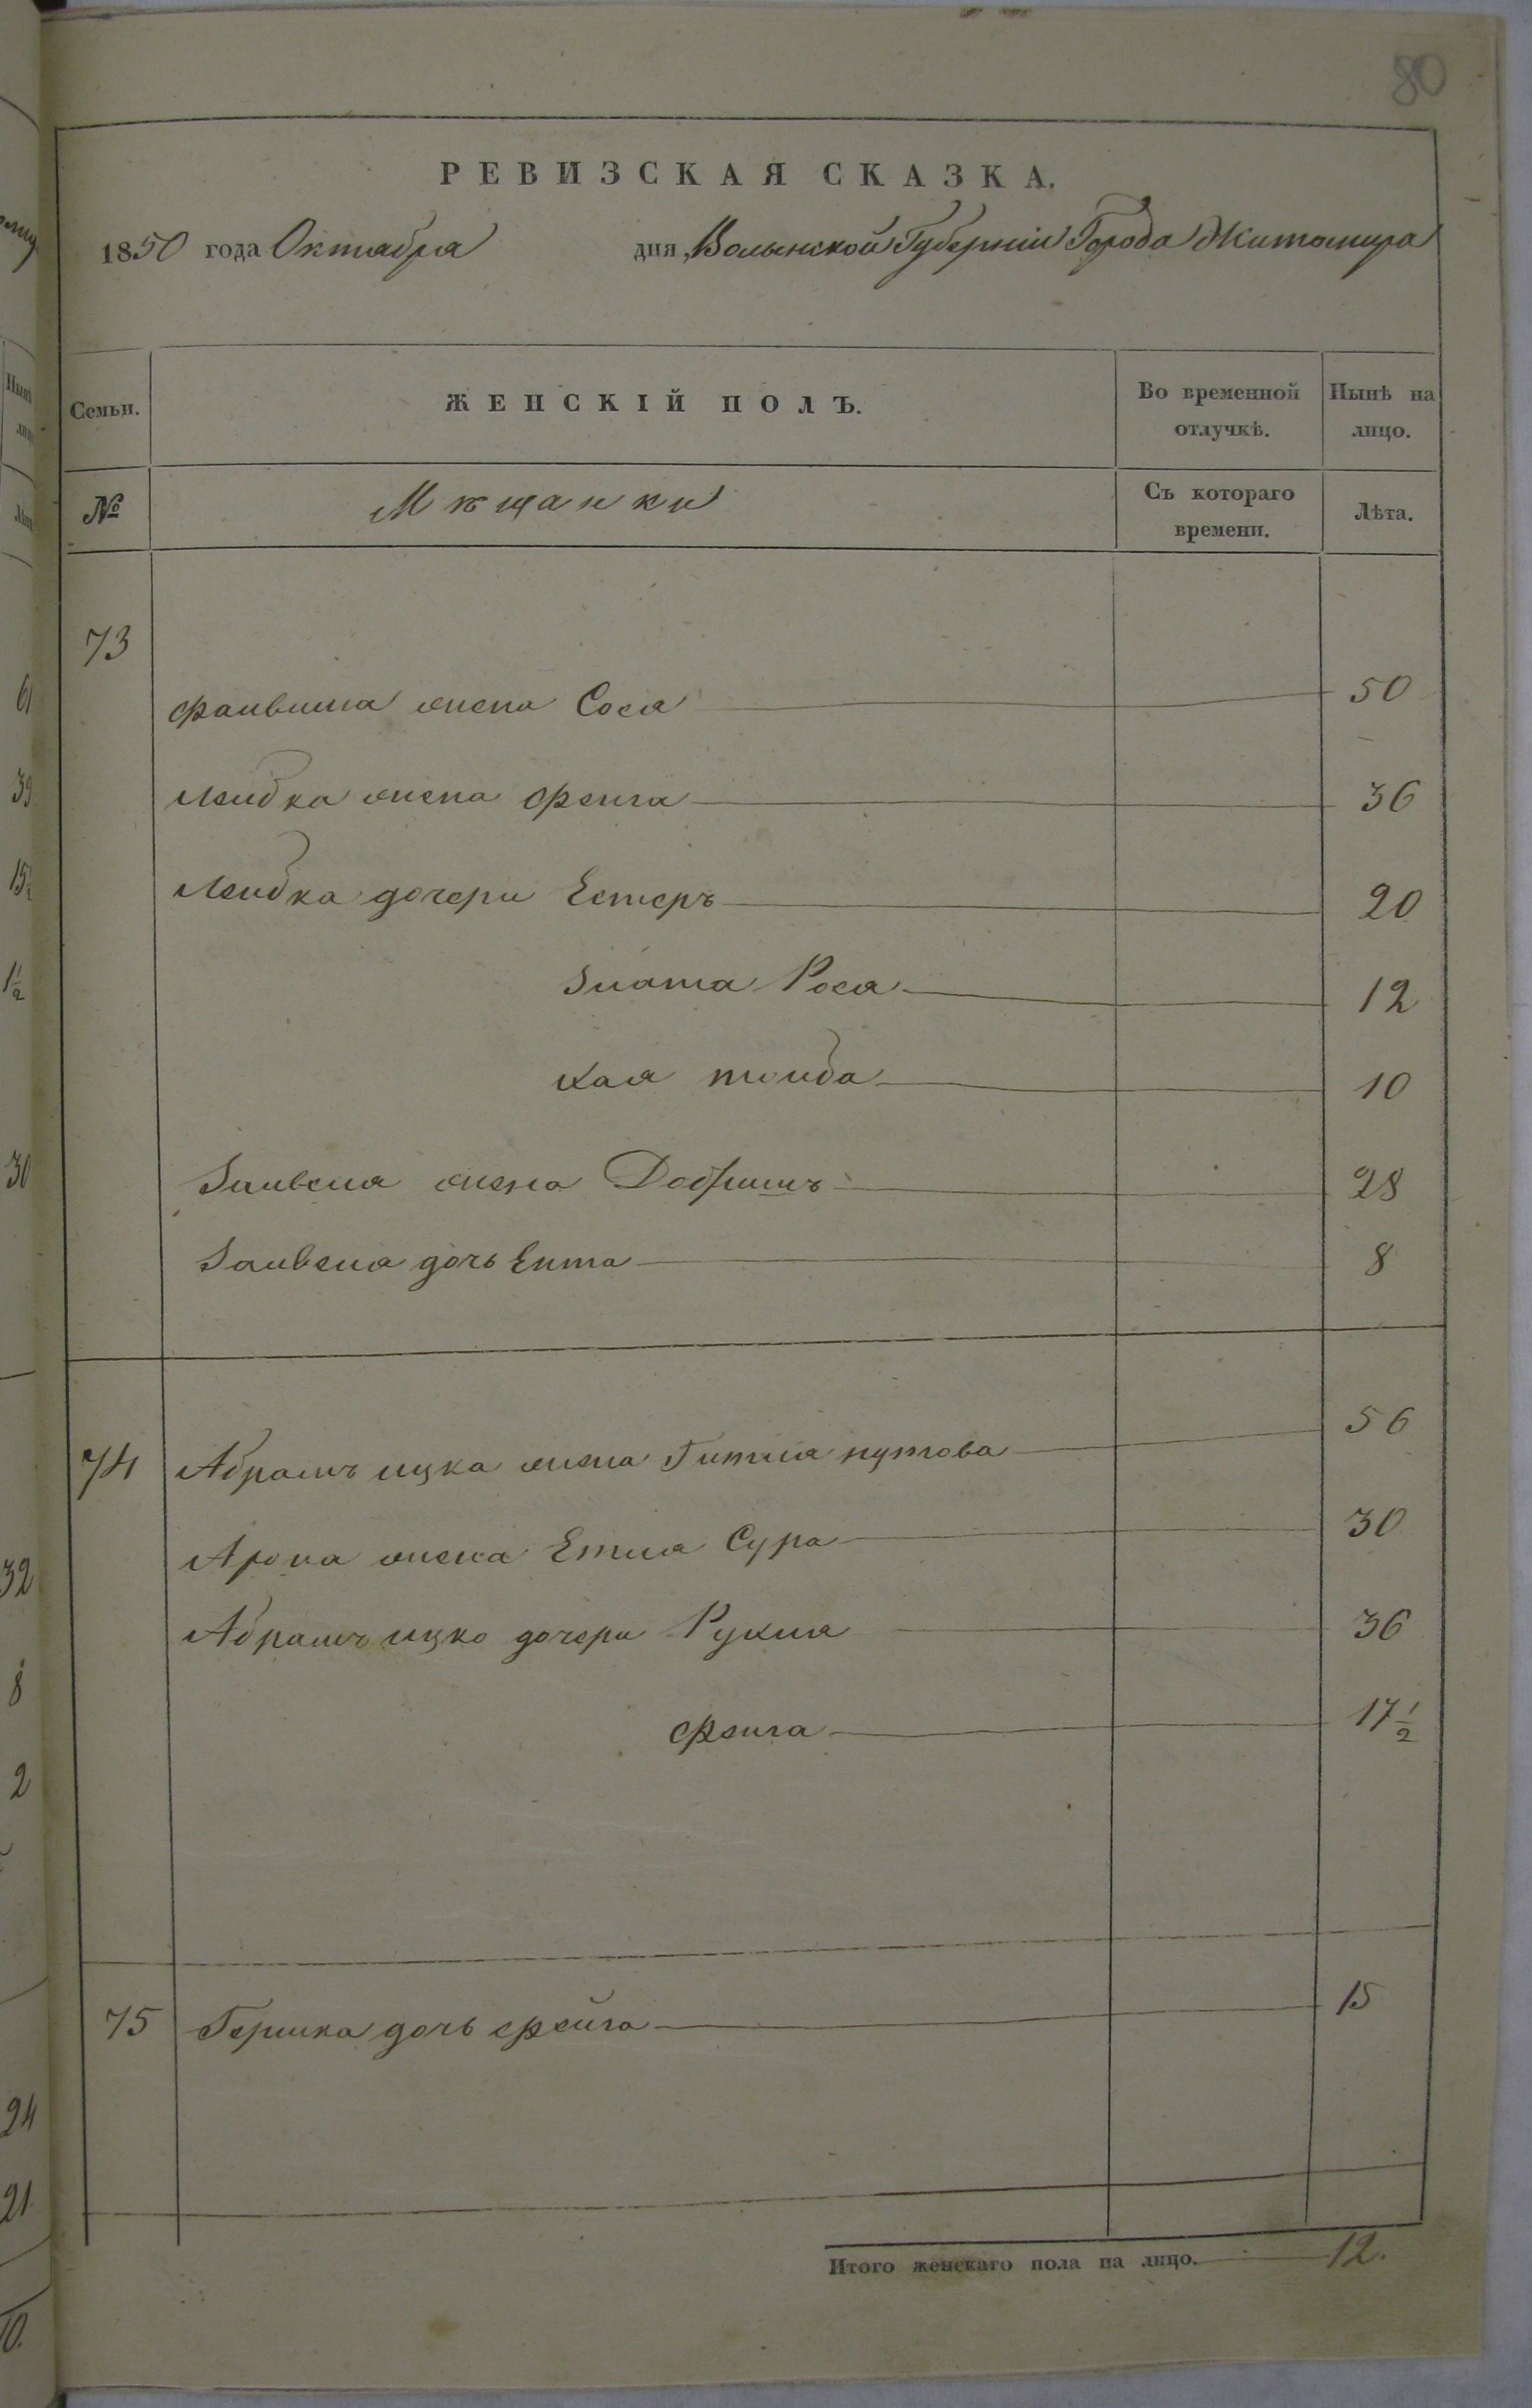 80
РЕВИЗСКАЯ СКАЗКА.
1850 года Октабра дня, Волынской Губерніи Города Житомира
Семьи. ЖЕНСКІЙ ПОЛЪ. Во временной отлучкѣ. Нынѣ на лицо.
№ Мѣщанки Съ котораго времени. Лѣта.
73
Фаивиша жена Сося 50
Лейбка жена Фейга 36
Лейбка дочери Естеръ 20
Злата Рося 12
Хая тойба 10
Зайвеля жена Добришъ 28
Зайвеля дочь Ента 8
74 Абрамъ ицка жена Гитля путова 56
Арона жена Етля Сура 30
Абрамъ ицко дочери Рухля 36
Фейга 17 1/2
75 Гершка дочь Фейга 15
Итого женскаго пола на лицо. 12.